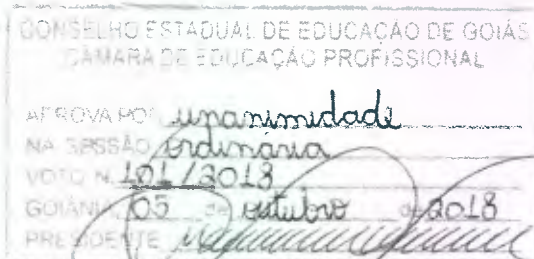 CONSELHO ESTADUAL DE EDUCAÇÃO DE GOIÁS
CÂMARA DE EDUCAÇÃO PROFISSIONAL
APROVA POR unanimidade
NA SESSÃO ordinária
VOTO N. 101/2018
GOIÂNIA, 05 de outubro de 2018
PRESIDENTE